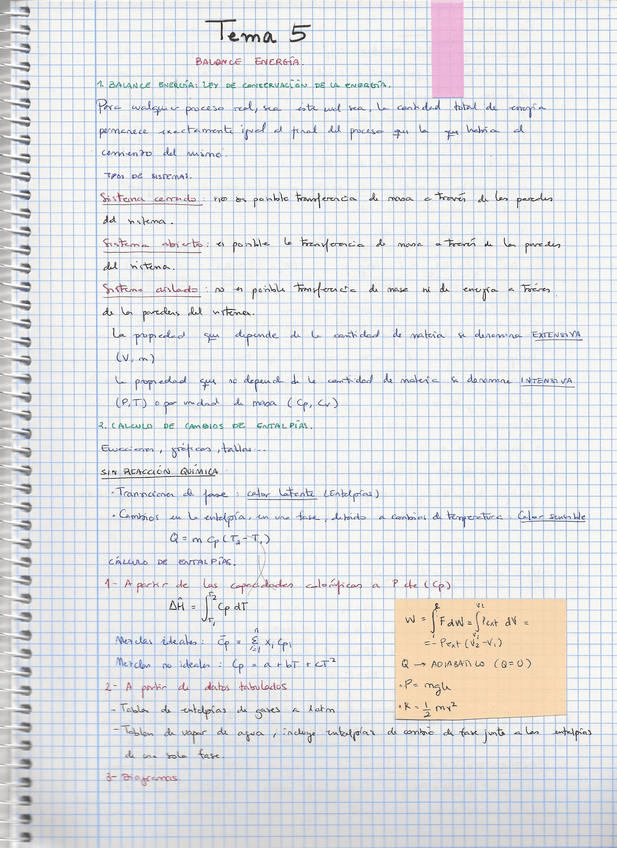 Tema 5
BALANCE ENERGÍA.
1. BALANCE ENERGÍA: LEY DE CONSERVACIÓN DE LA ENERGÍA.
Para cualquier proceso real, sea éste cual sea, la cantidad total de energía
permanece exactamente igual al final del proceso que la que había al
comienzo del mismo.
TIPOS DE SISTEMAS.
Sistema cerrado: no es posible transferencia de masa a través de las paredes
del sistema.
Sistema abierto: es posible la transferencia de masa a través de las paredes
del sistema.
Sistema aislado: no es posible transferencia de masa ni de energía a través
de las paredes del sistema.
La propiedad que depende de la cantidad de materia se denomina EXTENSIVA
(V, m)
La propiedad que no depende de la cantidad de materia se denomina INTENSIVA
(P, T) o por unidad de masa (Cp, Cv)
2. CALCULO DE CAMBIOS DE ENTALPÍAS.
Ecuaciones, gráficas, tablas...
SIN REACCIÓN QUÍMICA
· Transiciones de fase: calor latente (Entalpías)
· Cambios en la entalpía, en una fase, debido a cambios de temperatura: Calor sensible
Q = m Cp (T2 - T1)
CÁLCULO DE ENTALPÍAS.
1- A partir de las capacidades caloríficas a P cte (Cp)
ΔĤ = ∫T1^T2 Cp dT
Mezclas ideales: C̄p = Σ i=1^n xi Cpi
Mezclas no ideales: Cp = a + bT + cT²
W = ∫ F dW = ∫V1^V2 Pext dV =
= - Pext (V2 - V1)
Q → ADIABÁTICO (Q=0)
· P = mgh
· K = 1/2 mv²
2- A partir de datos tabulados
- Tabla de entalpías de gases a 1 atm
- Tablas de vapor de agua, incluye entalpías de cambio de fase junto a las entalpías
de una sola fase.
3- Diagramas